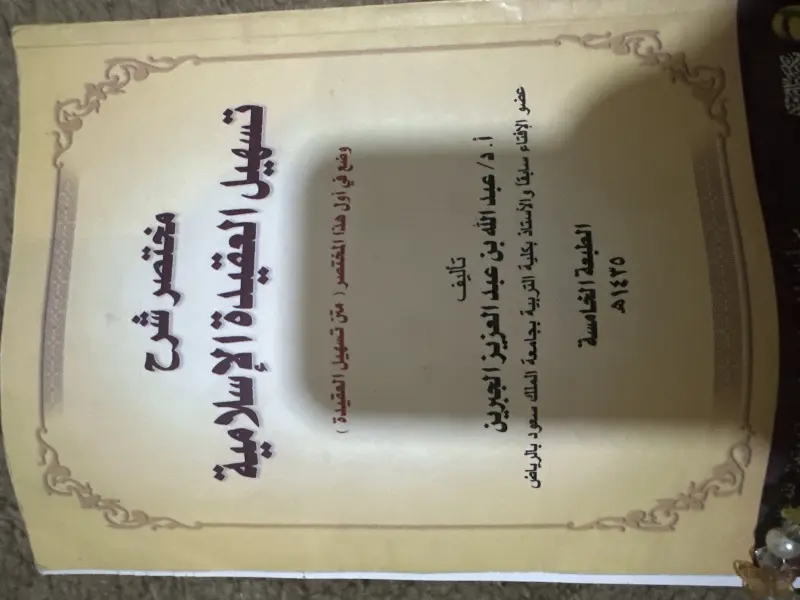 مختصر شرح
تسهيل العقيدة الإسلامية
وضع في أول هذا المختصر ( متن تسهيل العقيدة )
تأليف
أ. د/ عبد الله بن عبد العزيز الجبرين
عضو الإفتاء سابقاً والأستاذ بكلية التربية بجامعة الملك سعود بالرياض
الطبعة الخامسة
١٤٣٥هـ